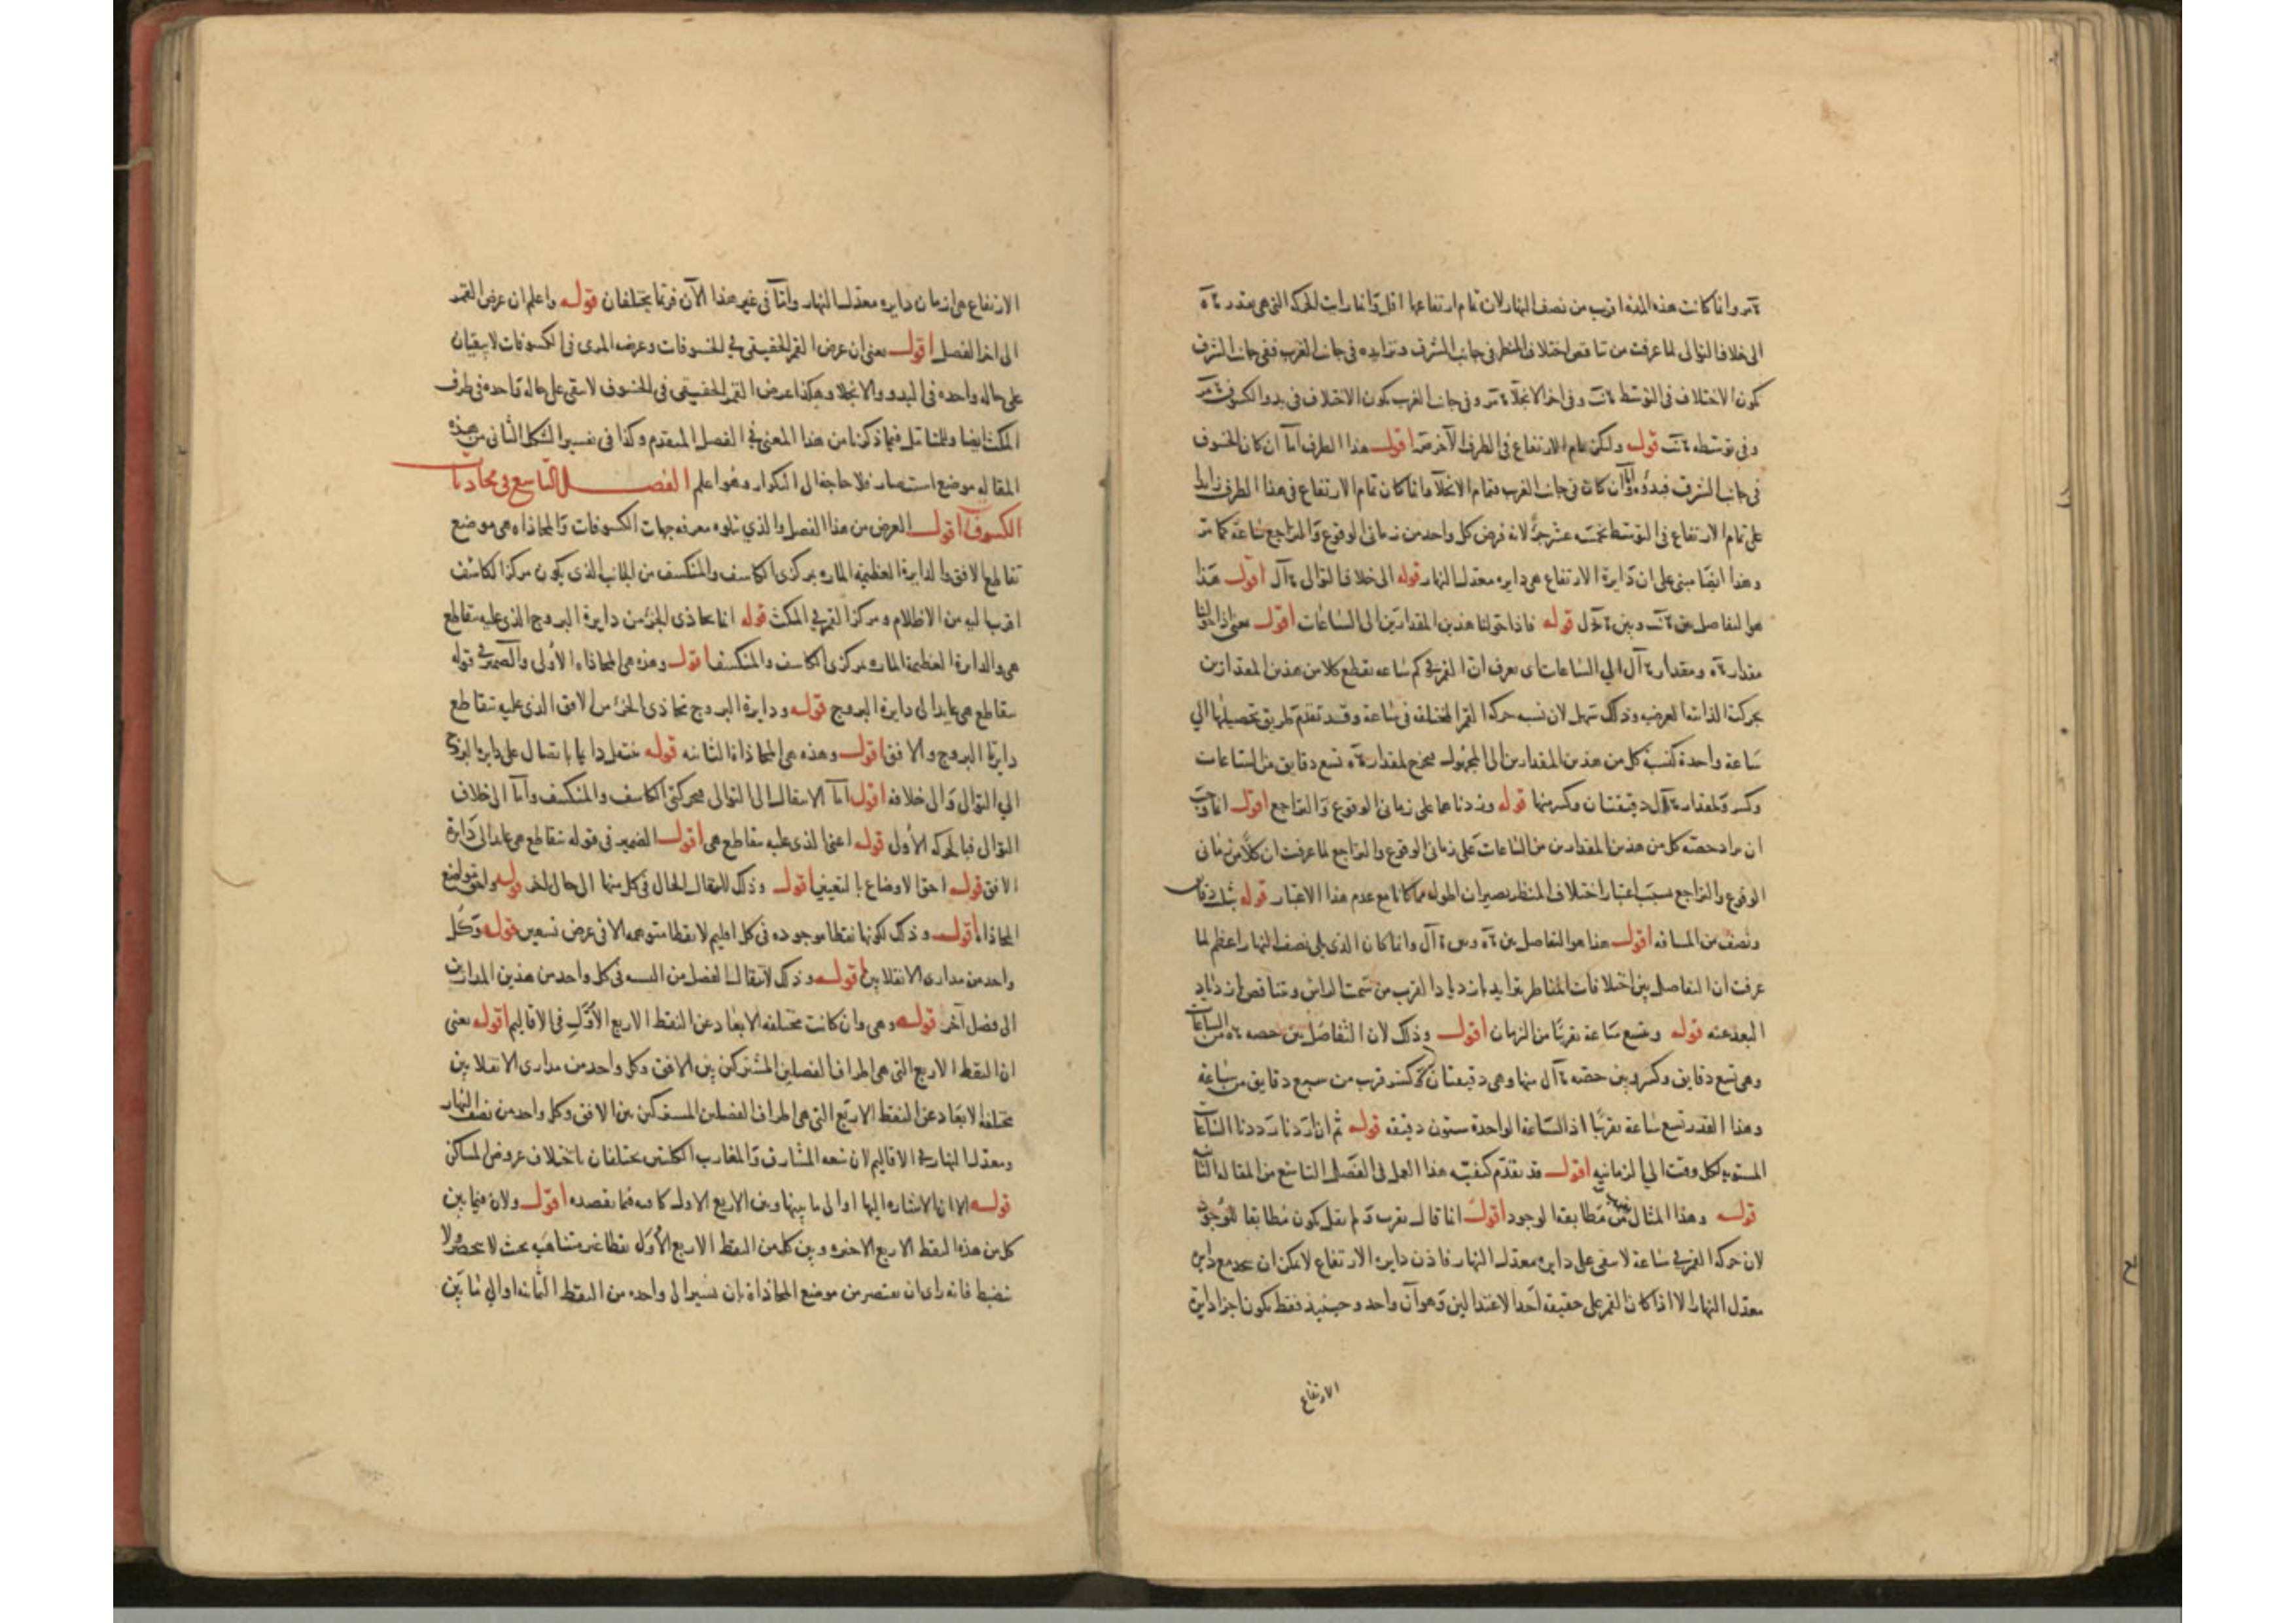 وانما كانت هذه المدة اقرب من نصف النهار لان تمام ارتفاعها اقل وانما رات الحركة التي هي بقدر
الى خلاف التوالى لما عرفت من تناقص اختلاف المنظر فى جانب المشرق وتزايده فى جانب المغرب ففى جانب الشرق
يكون الاختلاف فى التوسط وفى اخر الانجلاء وفى جانب الغرب يكون الاختلاف فى بدو الكسوف
وفى توسطه قوله وليكن تمام الارتفاع فى الطرف الآخر اقول هذا الطرف اما ان كان الخسوف
فى جانب الشرق فبدؤه وان كان فى جانب الغرب فتمام الانجلاء وانما كان تمام الارتفاع فى هذا الطرف زايدا
على تمام الارتفاع فى التوسط بخمسة عشر جزءا لانه فرض كل واحد من زمانى الوقوع والتراجع ساعة كما مر
وهذا ايضا مبنى على ان دايرة الارتفاع هى دايره معدل النهار قوله الى خلاف التوال اقول هذا
هو التفاصل بين وبين قوله فاذا حولنا هذين المقدارين الى الساعات اقول معنى اذا حولنا
مقدار ومقدار الى الساعات اى نعرف ان القمر فى كم ساعه يقطع كلا من هذين المقدارين
بحركته الذاتية العرضيه وذلك سهل لان نسبه حركة القمر المختلفه فى ساعة وقد تقدم طريق تحصيلها الي
ساعة واحدة كنسبة كل من هذين المقدارين الى المجهول فيخرج لمقدار تسع دقايق من الساعات
وكسر ولمقدار دقيقتان وكسر منها قوله وزدناهما على زمانى الوقوع والتراجع اقول انما وجب
ان يزاد حصة كل من هذين المقدارين من الساعات على زمانى الوقوع والتراجع لما عرفت ان كلا من زمانى
الوقوع والتراجع بسبب اعتبار اختلاف المنظر يصيران اطول مما كانا مع عدم هذا الاعتبار قوله
ونصف من المسافه اقول هذا هو التفاصل بين وبين وانما كان الذى يلى نصف النهار اعظم لما
عرفت ان التفاصل بين اختلافات المناظر يتزايد بازدياد القرب من سمت الراس ويتناقص بازدياد
البعد عنه قوله وبتسع ساعة تقريبا من الزمان اقول وذلك لان التفاصل بين حصه من الساعات
وهى تسع دقايق وكسر وبين حصه منها وهى دقيقتان وكسر قريب من سبع دقايق من ساعة
وهذا القدر تسع ساعة تقريبا اذ الساعة الواحدة ستون دقيقه قوله ثم ان اردنا رددنا الساعات
المستويه لكل وقت الي الزمانيه اقول قد تقدم كيفيه هذا العمل فى الفصل التاسع من المقاله الثانية
قوله وهذا المثال يقرب من مطابقة الوجود اقول انما قال يقرب ولم يقل يكون مطابقا للوجود
لان حركة القمر فى ساعة لا يبقى على دايره معدل النهار فاذن دايره الارتفاع لا يمكن ان يتحد مع داير
معدل النهار الا اذا كان القمر على حقيقة احد الاعتدالين وهو آن واحد وحينيذ فقط يكون اجزا داير
الارتفاع
الارتفاع هى ازمان دايره معدل النهار وامّا فى غير هذا الآن فربما يختلفان قوله واعلم ان عرض القمر
الى اخر الفصل اقول معنى ان عرض القمر الحقيقى فى الخسوفات وعرضه المرى فى الكسوفات لا يبقيان
على حاله واحده فى البدو والانجلاء وهكذا عرض القمر الحقيقى فى الخسوف لا يبقى على حاله واحده فى طرفى
المكث ايضا وللتامل فيما ذكرنا من هذا المعنى فى الفصل المتقدم وكذا فى تفسير الشكل الثانى من هذه
المقاله موضع استبصار فلا حاجة الى التكرار وهو اعلم الفصل التاسع فى محاذيات
الكسوف اقول الغرض من هذا الفصل والذي يتلوه معرفه جهات الكسوفات والمحاذاه هى موضع
تقاطع الافق والدايرة العظيمة الماره بمركزى الكاسف والمنكسف من الجانب الذى يكون مركز الكاسف
اقرب اليه من الاظلام ومركز القمر فى المكث قوله انما يحاذى الجزء من دايرة البروج الذى عليه يتقاطع
هى والدايرة العظيمة الماره بمركزى الكاسف والمنكسف اقول وهذه هى المحاذاه الأولى والضمير فى قوله
يتقاطع هى عايد الى دايرة البروج قوله ودايرة البروج تحاذى الجزء من الافق الذى عليه يتقاطع
دايرتا البروج والافق اقول وهذه هى المحاذاة الثانيه قوله ينتقل دايما بانتقال على دايرة البروج
الي التوالى والى خلافه اقول اما الانتقال الى التوالى فبحركتى الكاسف والمنكسف وأما الى خلاف
التوالى فبالحركه الأولى قوله اعنى الذى عليه يتقاطع هى اقول الضمير فى قوله يتقاطع هى عايد الى دايرة
الافق قوله احق الاوضاع بالتعيين اقول وذلك لانتقال الحال فى كل منها الى حال اخر قوله مواضع
المحاذاة اقول وذلك لكونها نقطا موجوده فى كل اقليم لا نقطا متوهمه الا فى عرض تسعين قوله وكل
واحد من مدارى الانقلابين اقول وذلك لانتقال الفصل من السنه فى كل واحد من هذين المدارين
الى فصل آخر قوله وهى وان كانت مختلفه الابعاد عن النقط الاربع الأول فى الاقاليم اقول يعنى
ان النقط الاربع التى هى اطراف الفصلين المشتركين بين الافق وكل واحد من مدارى الانقلابين
مختلفة الابعاد عن النقط الاربع التى هى اطراف الفصلين المشتركين بين الافق وكل واحد من نصف النهار
ومعدل النهار فى الاقاليم لان سعه المشارق والمغارب الكليتين يختلفان باختلاف عروض المساكن
قوله الا ان الاشاره اليها او الى ما بينها وبين الاربع الاول كافيه فيما نقصده اقول ولان فيما بين
كل من هذه النقط الاربع الاخيره وبين كل من النقط الاربع الأول نقطا غير متناهيه بحيث لا يحصر ولا
تضبط فانه راى ان يقتصر من موضع المحاذاة بان يسير الى واحده من النقط الثمانيه او الي ما بين